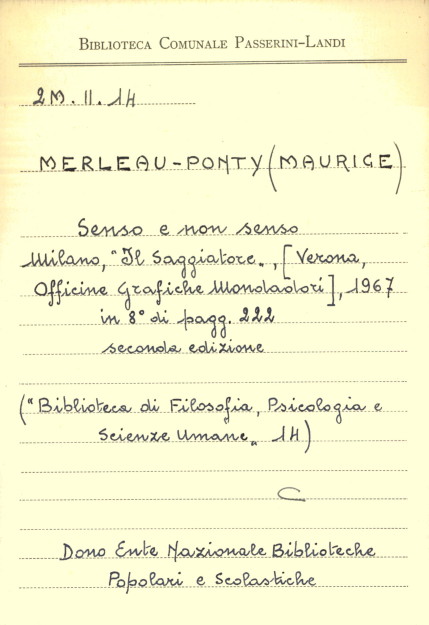 BIBLIOTECA COMUNALE PASSERINI-LANDI
2M. II. 14
MERLEAU-PONTY (MAURICE)
Senso e non senso
Milano, "Il Saggiatore„, [Verona,
Officine Grafiche Mondadori], 1967
in 8° di pagg. 222
seconda edizione
("Biblioteca di Filosofia, Psicologia e
Scienze Umane„ 14)
C
Dono Ente Nazionale Biblioteche
Popolari e Scolastiche